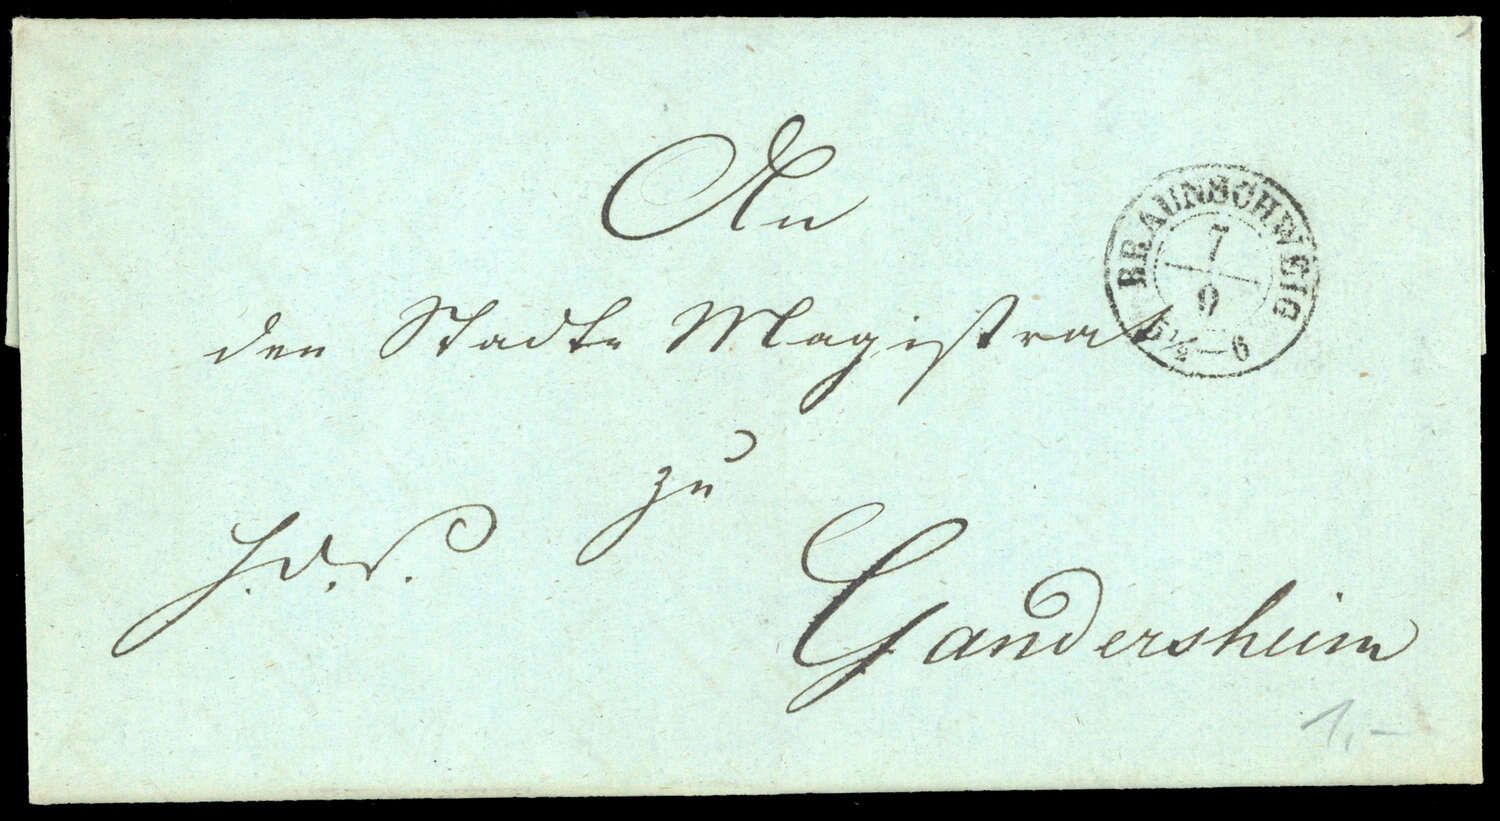 An
den Stadt- Magistrat
zu
H.d.S.
Gandersheim
BRAUNSCHWEIG
7
9
5½—6
1,-